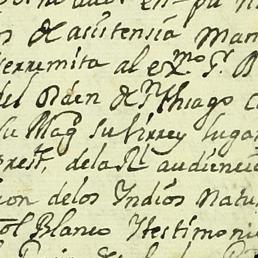 de asistensia Man
serremita al exmo Sr. B
del orden de Sn thiago c
su Magd su birrey lugar
prest. de la Rl audiencia
cion de los Indios Natu
ol Blanco Ytestimonio